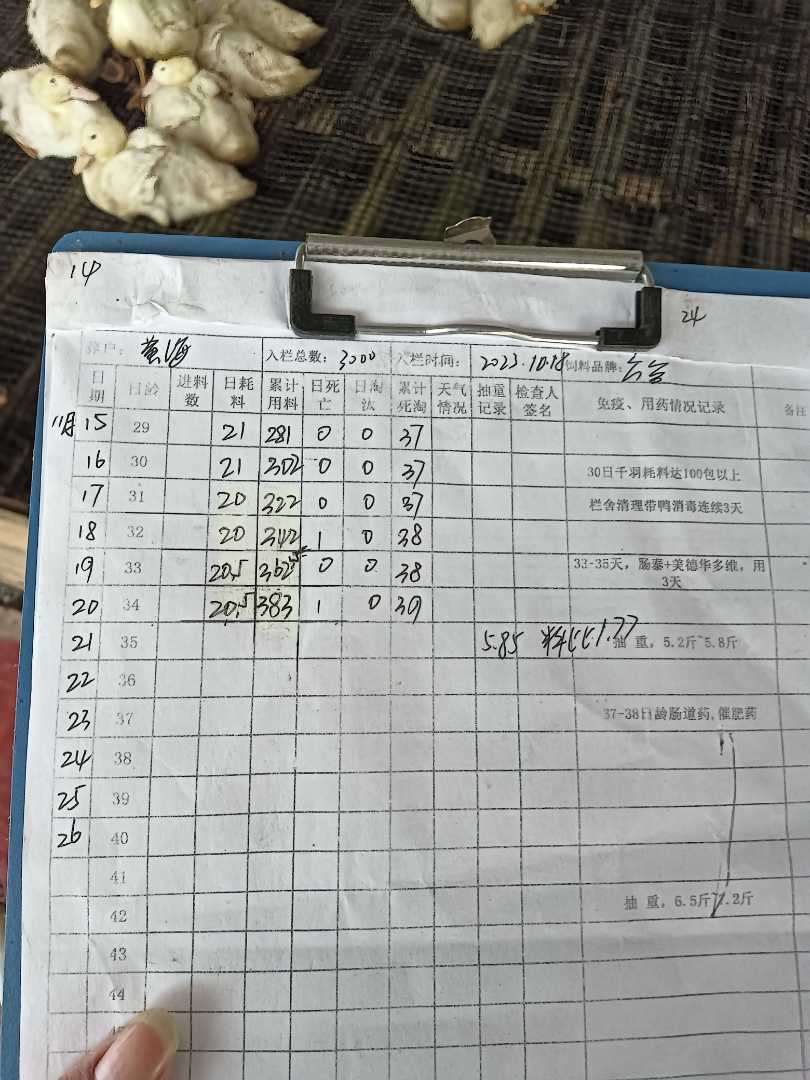 14
24
养户： 入栏总数：3000 入栏时间：2023.10.18 饲料品牌：
日期 日龄 进料数 日耗料 累计用料 日死亡 日淘汰 累计死淘 天气情况 抽重记录 检查人签名 免疫、用药情况记录 备注
11月15 29 21 281 0 0 37
16 30 21 302 0 0 37 30日千羽耗料达100包以上
17 31 20 322 0 0 37 栏舍清理带鸭消毒连续3天
18 32 20 342 1 0 38
19 33 20.5 362.5 0 0 38 33-35天，肠泰+美德华多维，用3天
20 34 20.5 383 1 0 39
21 35 5.85 料比1.77 抽 重，5.2斤~5.8斤
22 36
23 37 37-38日龄肠道药,催肥药
24 38
25 39
26 40
41
42 抽 重，6.5斤~7.2斤
43
44